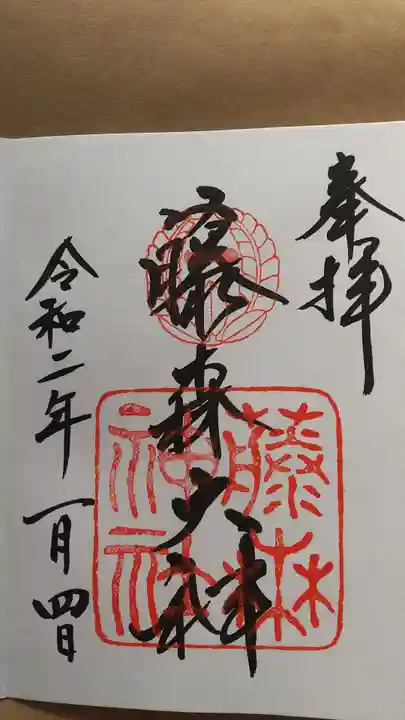 奉拝
藤森大神
藤森神社
令和二年一月四日